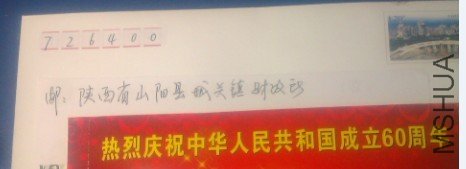 726400
邮：陕西省山阳县城关镇财政所
热烈庆祝中华人民共和国成立60周年
MSHUA